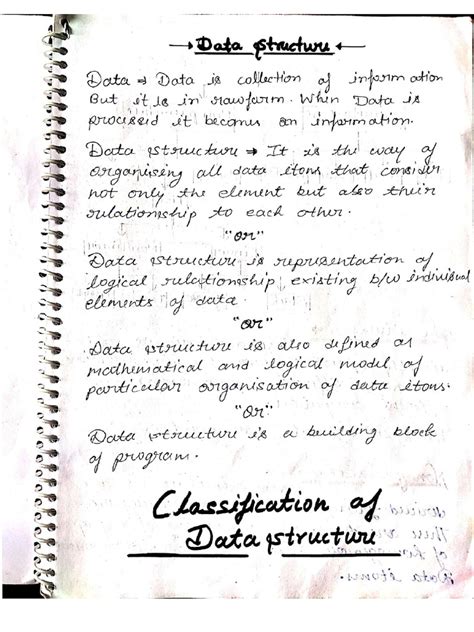 → Data Structure ←
Data → Data is collection of information
But it is in rawform. When Data is
processed it becomes an information.
Data structure → It is the way of
organising all data itons that consider
not only the element but also their
relationship to each other.
"or"
Data structure is representation of
logical relationship existing b/w individual
elements of data.
"or"
Data structure is also defined as
mathematical and logical model of
particular organisation of data itons.
"or"
Data structure is a building block
of program.
Classification of
Data structure